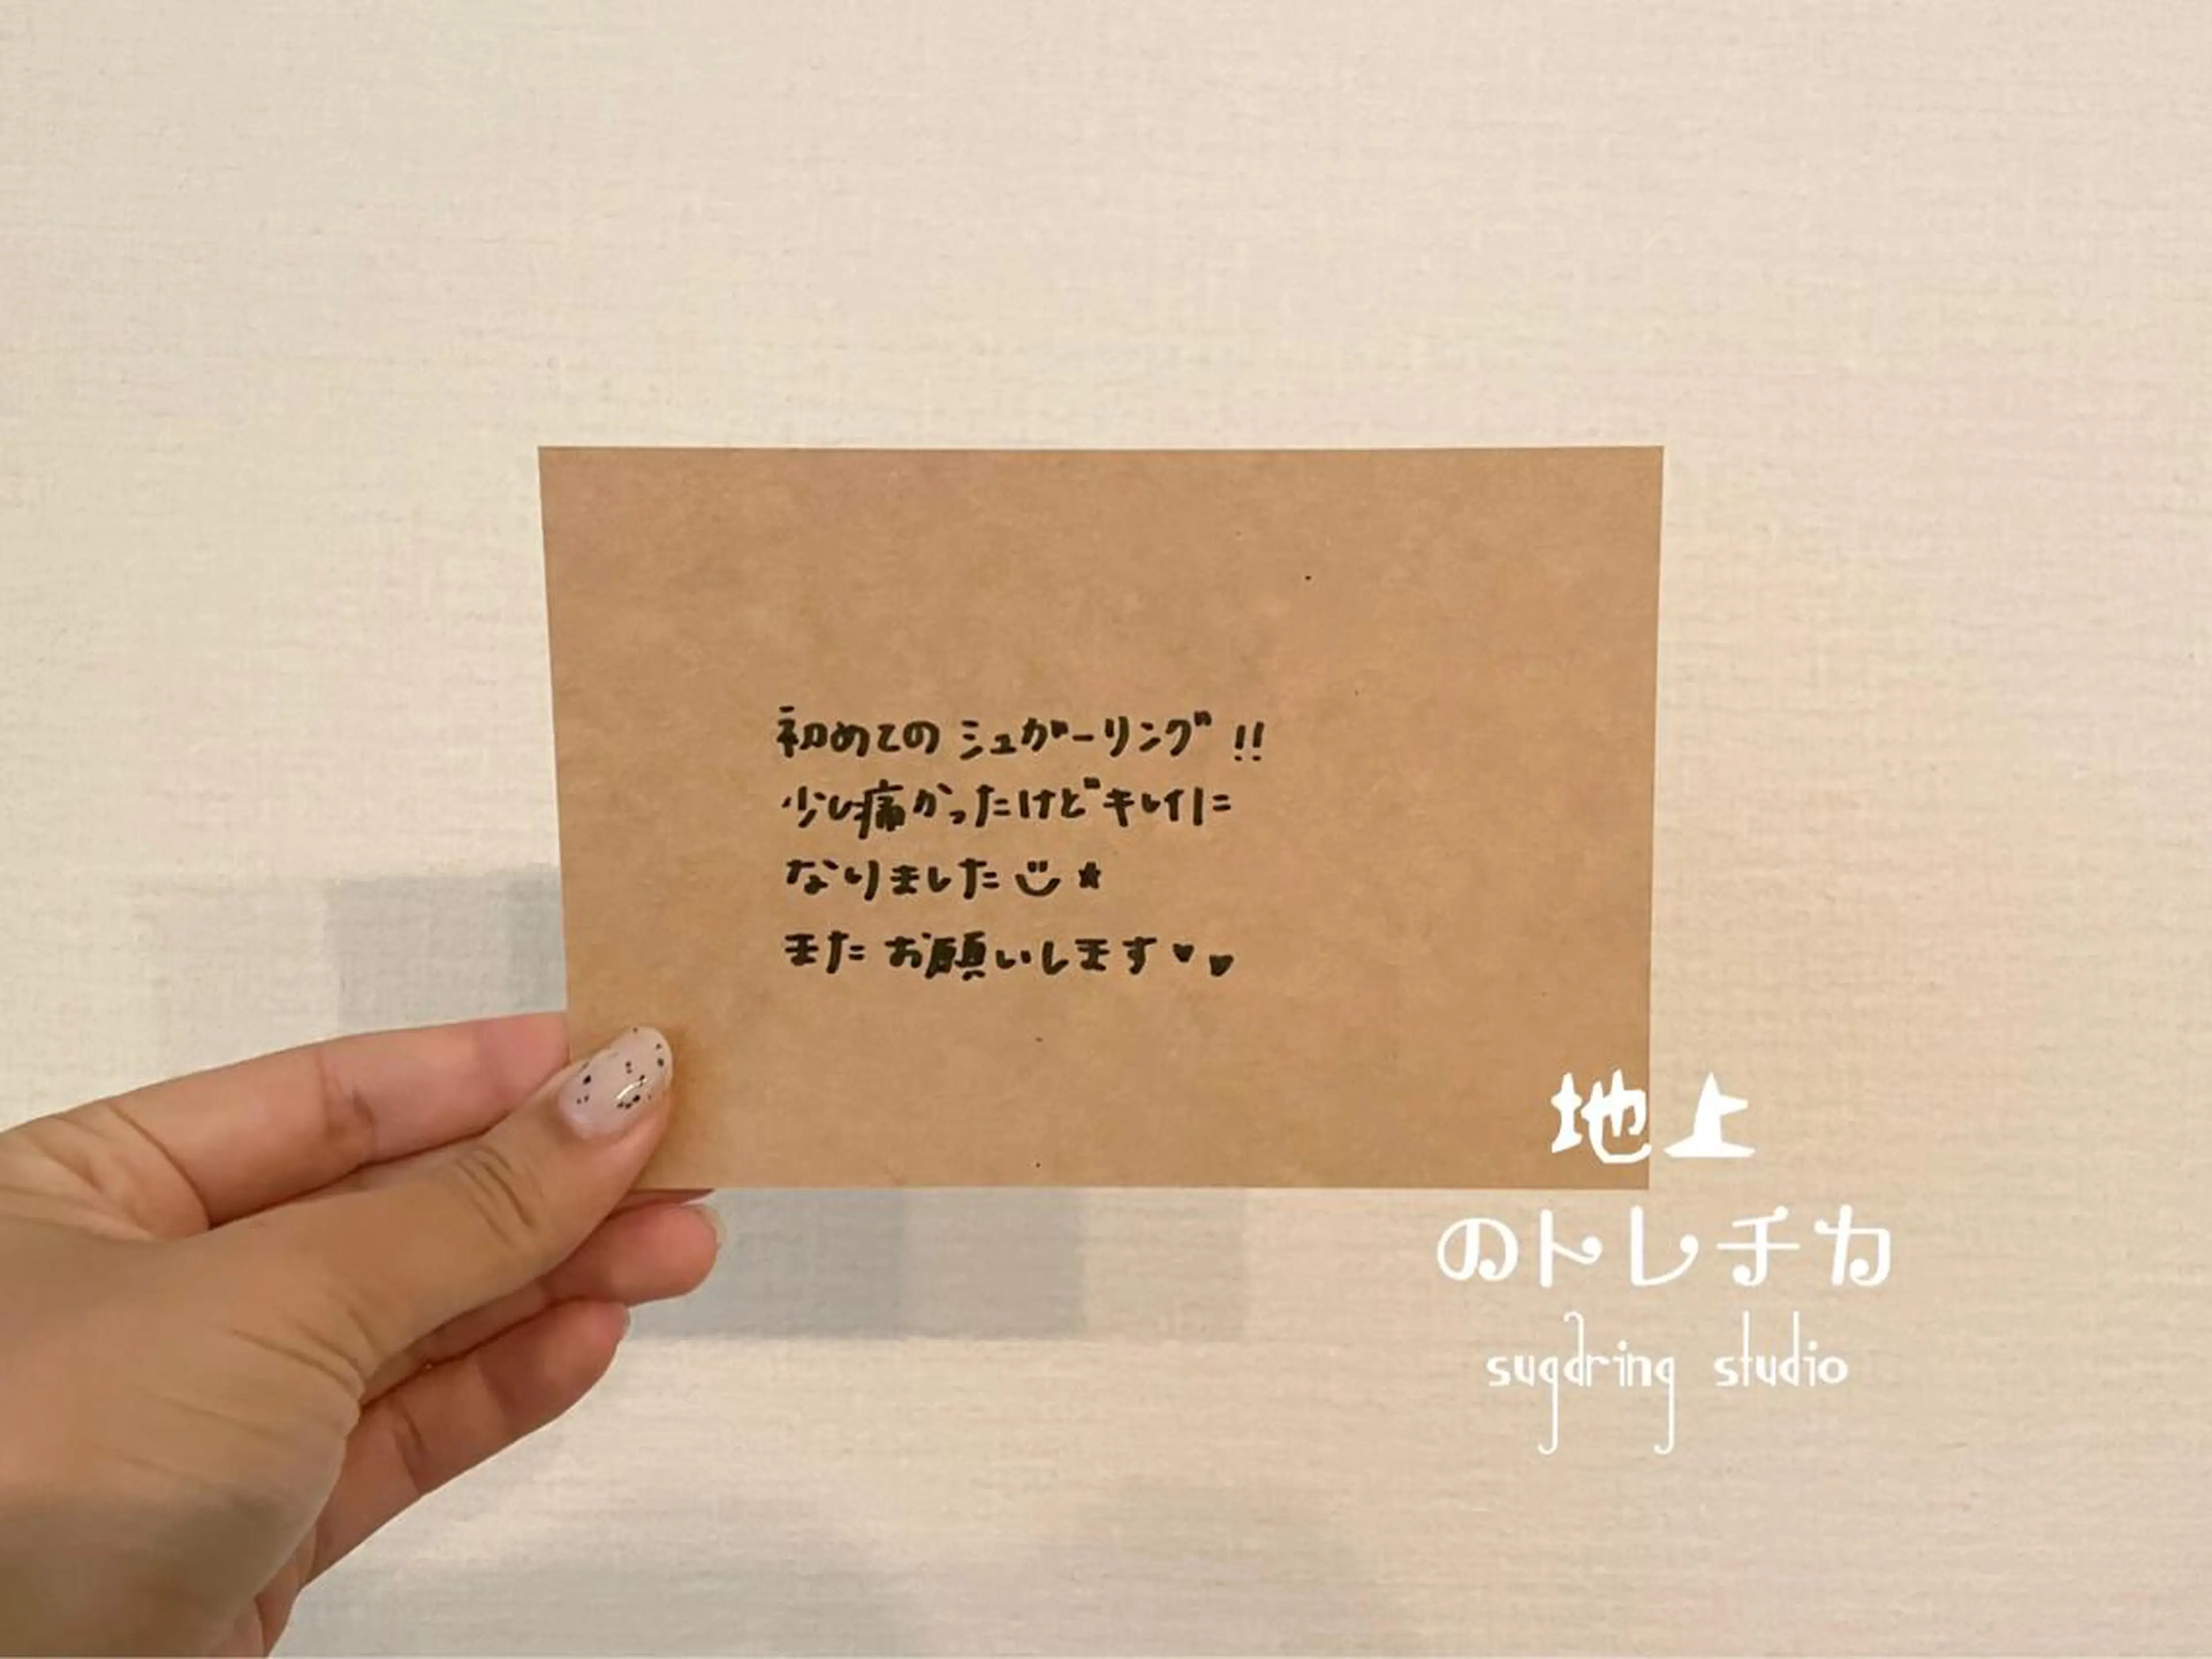 初めてのシュガーリング!!
少し痛かったけどキレイに
なりました☺★
またお願いします♥♥
地上
のトレチカ
sugaring studio